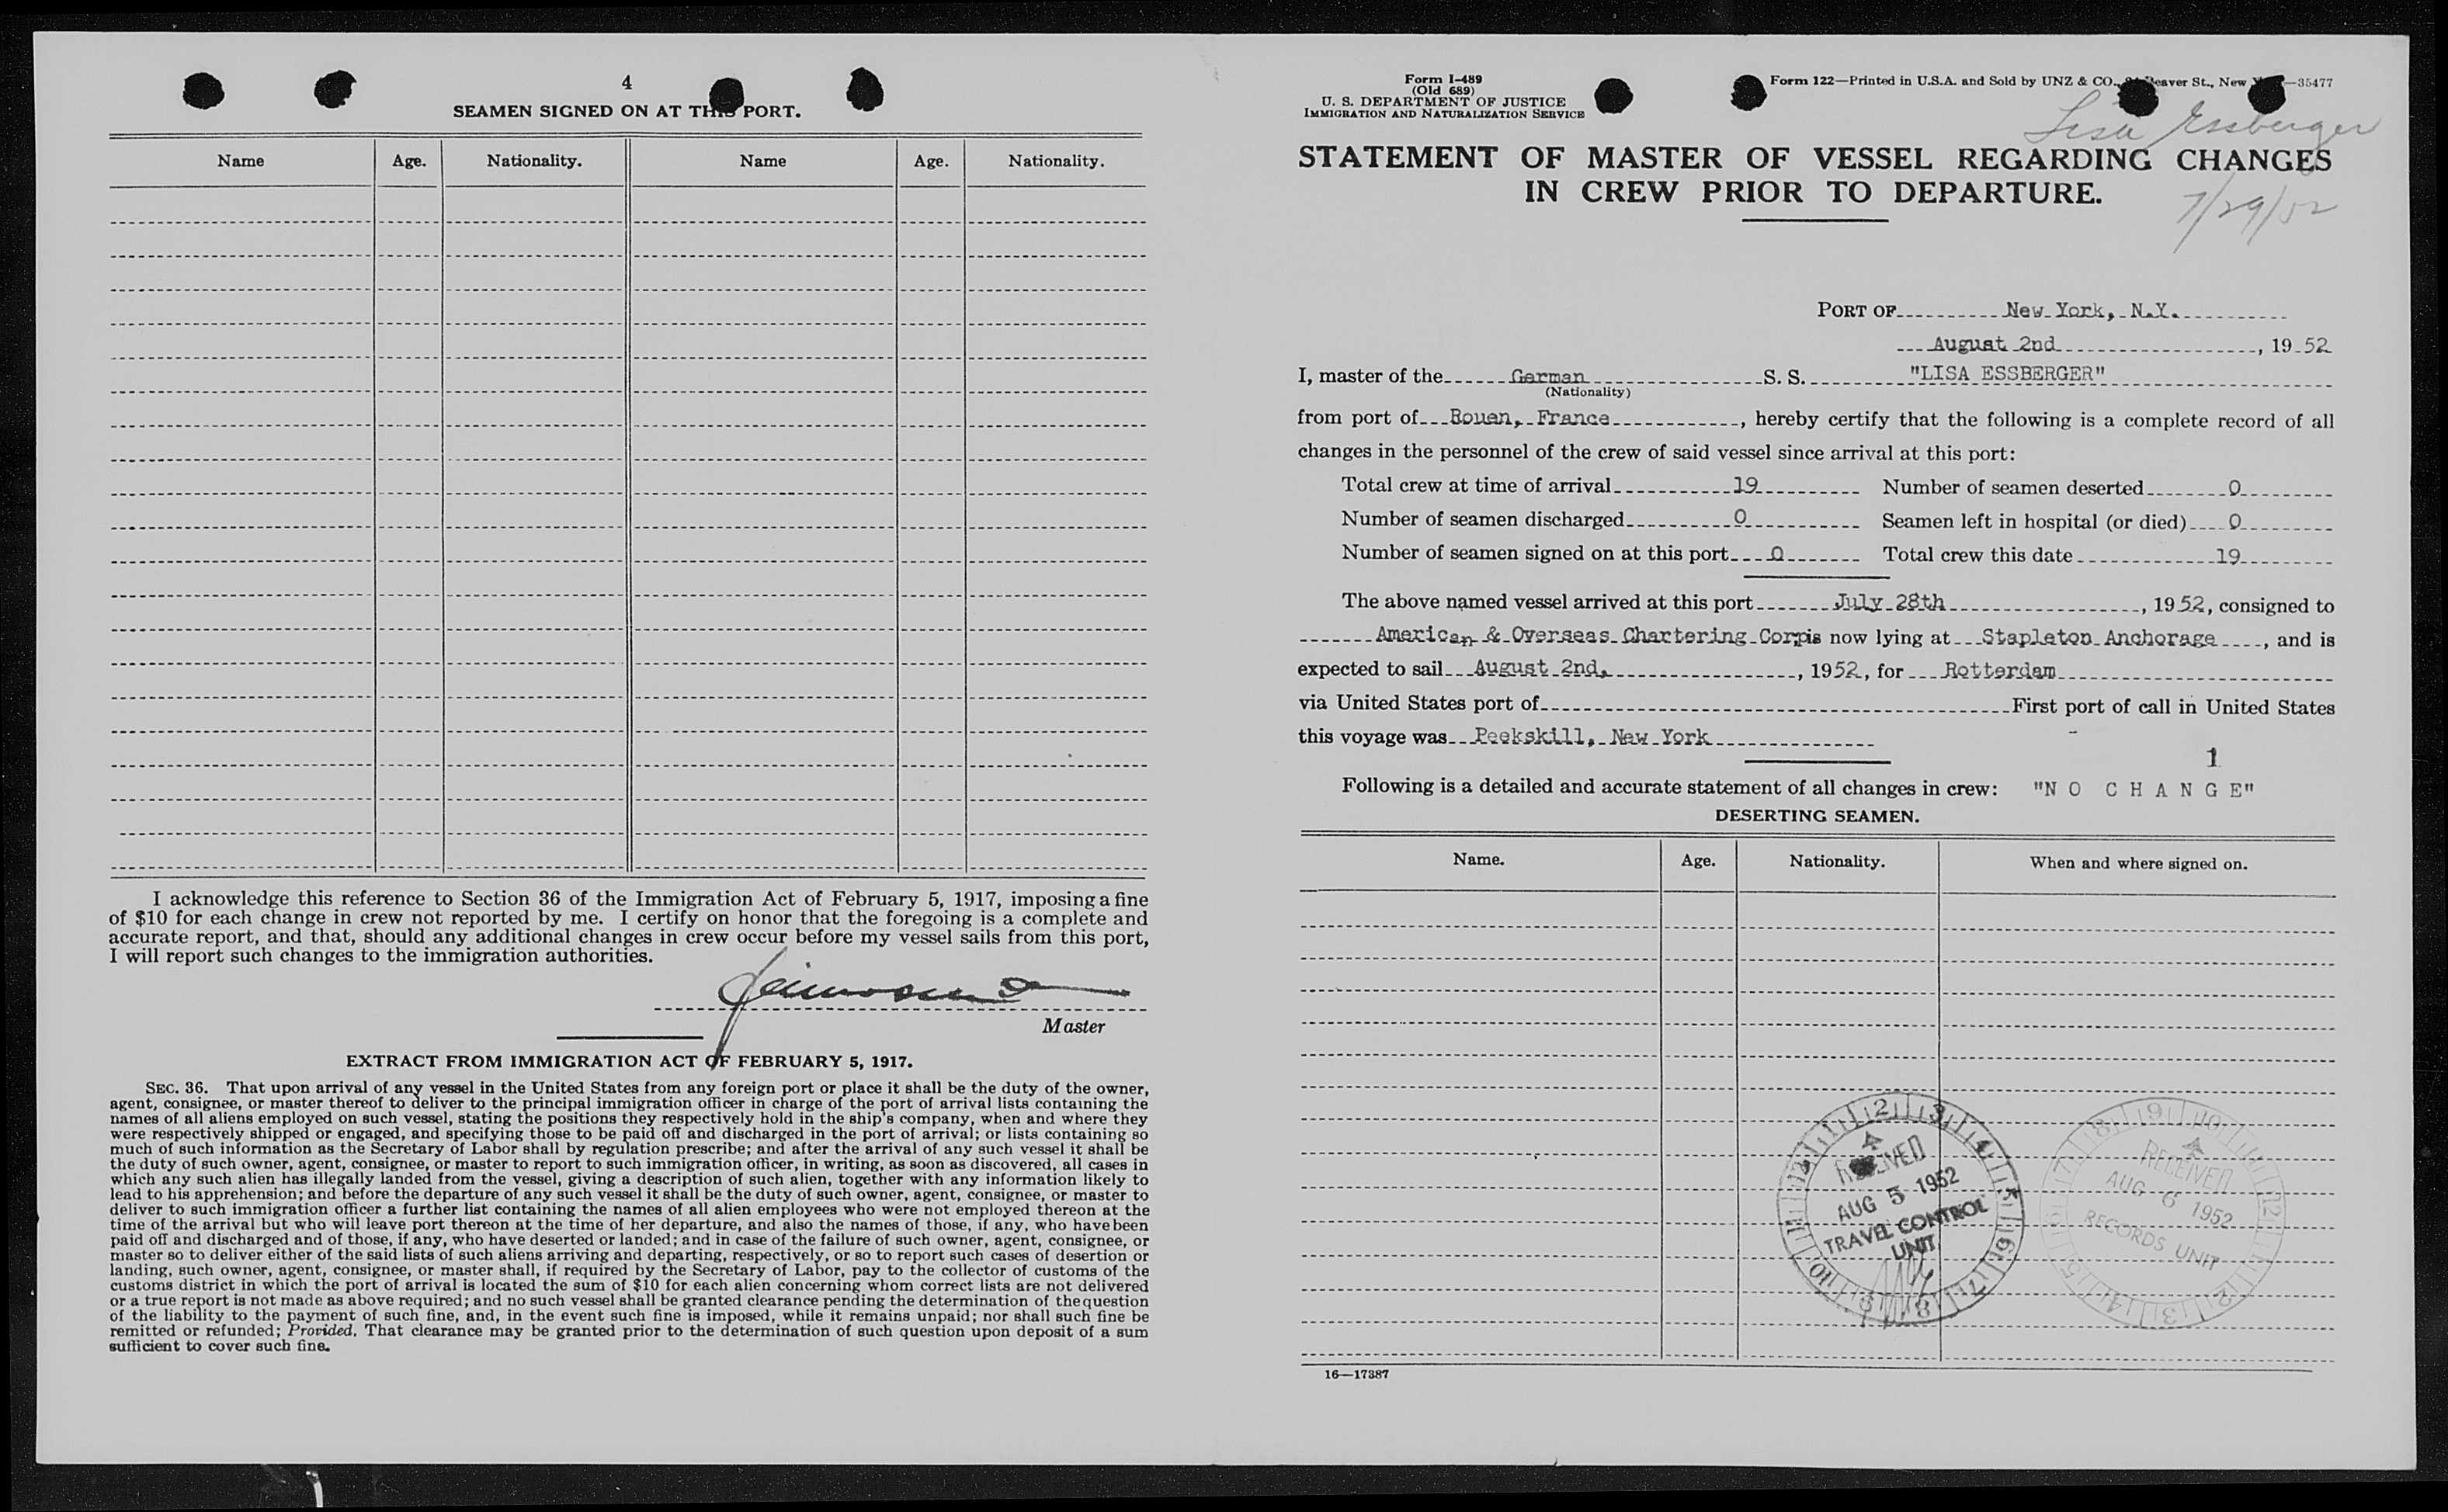 4
SEAMEN SIGNED ON AT THIS PORT.
Name Age. Nationality. Name Age. Nationality.
I acknowledge this reference to Section 36 of the Immigration Act of February 5, 1917, imposing a fine
of $10 for each change in crew not reported by me. I certify on honor that the foregoing is a complete and
accurate report, and that, should any additional changes in crew occur before my vessel sails from this port,
I will report such changes to the immigration authorities.
Master
EXTRACT FROM IMMIGRATION ACT OF FEBRUARY 5, 1917.
SEC. 36. That upon arrival of any vessel in the United States from any foreign port or place it shall be the duty of the owner,
agent, consignee, or master thereof to deliver to the principal immigration officer in charge of the port of arrival lists containing the
names of all aliens employed on such vessel, stating the positions they respectively hold in the ship's company, when and where they
were respectively shipped or engaged, and specifying those to be paid off and discharged in the port of arrival; or lists containing so
much of such information as the Secretary of Labor shall by regulation prescribe; and after the arrival of any such vessel it shall be
the duty of such owner, agent, consignee, or master to report to such immigration officer, in writing, as soon as discovered, all cases in
which any such alien has illegally landed from the vessel, giving a description of such alien, together with any information likely to
lead to his apprehension; and before the departure of any such vessel it shall be the duty of such owner, agent, consignee, or master to
deliver to such immigration officer a further list containing the names of all alien employees who were not employed thereon at the
time of the arrival but who will leave port thereon at the time of her departure, and also the names of those, if any, who have been
paid off and discharged and of those, if any, who have deserted or landed; and in case of the failure of such owner, agent, consignee, or
master so to deliver either of the said lists of such aliens arriving and departing, respectively, or so to report such cases of desertion or
landing, such owner, agent, consignee, or master shall, if required by the Secretary of Labor, pay to the collector of customs of the
customs district in which the port of arrival is located the sum of $10 for each alien concerning whom correct lists are not delivered
or a true report is not made as above required; and no such vessel shall be granted clearance pending the determination of the question
of the liability to the payment of such fine, and, in the event such fine is imposed, while it remains unpaid; nor shall such fine be
remitted or refunded; Provided, That clearance may be granted prior to the determination of such question upon deposit of a sum
sufficient to cover such fine.
Form I-489
(Old 689)
U. S. DEPARTMENT OF JUSTICE
IMMIGRATION AND NATURALIZATION SERVICE
Form 122—Printed in U.S.A. and Sold by UNZ & CO., Beaver St., New —35477
Lisa Essberger
STATEMENT OF MASTER OF VESSEL REGARDING CHANGES
IN CREW PRIOR TO DEPARTURE.
7/29/52
PORT OF New York, N.Y.
August 2nd, 1952
I, master of the German S. S. "LISA ESSBERGER"
(Nationality)
from port of Rouen, France, hereby certify that the following is a complete record of all
changes in the personnel of the crew of said vessel since arrival at this port:
Total crew at time of arrival 19 Number of seamen deserted 0
Number of seamen discharged 0 Seamen left in hospital (or died) 0
Number of seamen signed on at this port 0 Total crew this date 19
The above named vessel arrived at this port July 28th, 1952, consigned to
American & Overseas Chartering Corp is now lying at Stapleton Anchorage, and is
expected to sail August 2nd, , 1952, for Rotterdam
via United States port of First port of call in United States
this voyage was Peekskill, New York
1
Following is a detailed and accurate statement of all changes in crew: "N O C H A N G E"
DESERTING SEAMEN.
Name. Age. Nationality. When and where signed on.
RECEIVED
AUG 5 1952
TRAVEL CONTROL
UNIT
RECEIVED
AUG 6 1952
RECORDS UNIT
16—17387